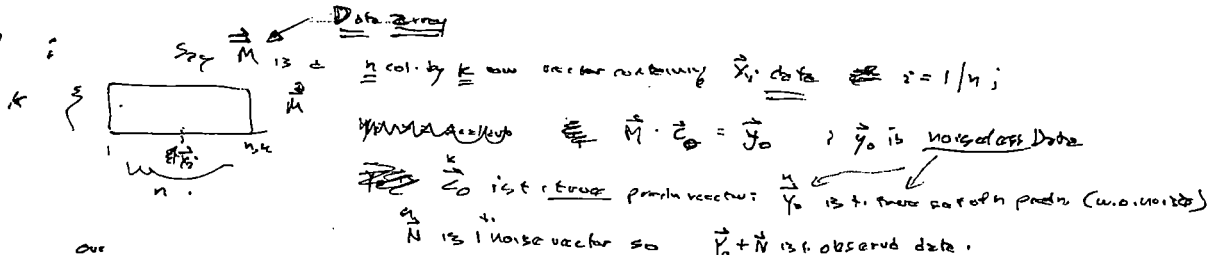 Data array
Say M⃗ is a n col. by k row vector containing X⃗ᵢ data i = 1/n ;
k { M⃗
M⃗ · c⃗₀ = y⃗₀ ; y⃗₀ is noiseless Data
1 n,k
n .
c⃗₀ is t. true predn vector: Y⃗₀ is t. true set of n predn (w.o. noise)
N⃗ is t. noise vector so Y⃗₀ + N⃗ is t. observed data .
our